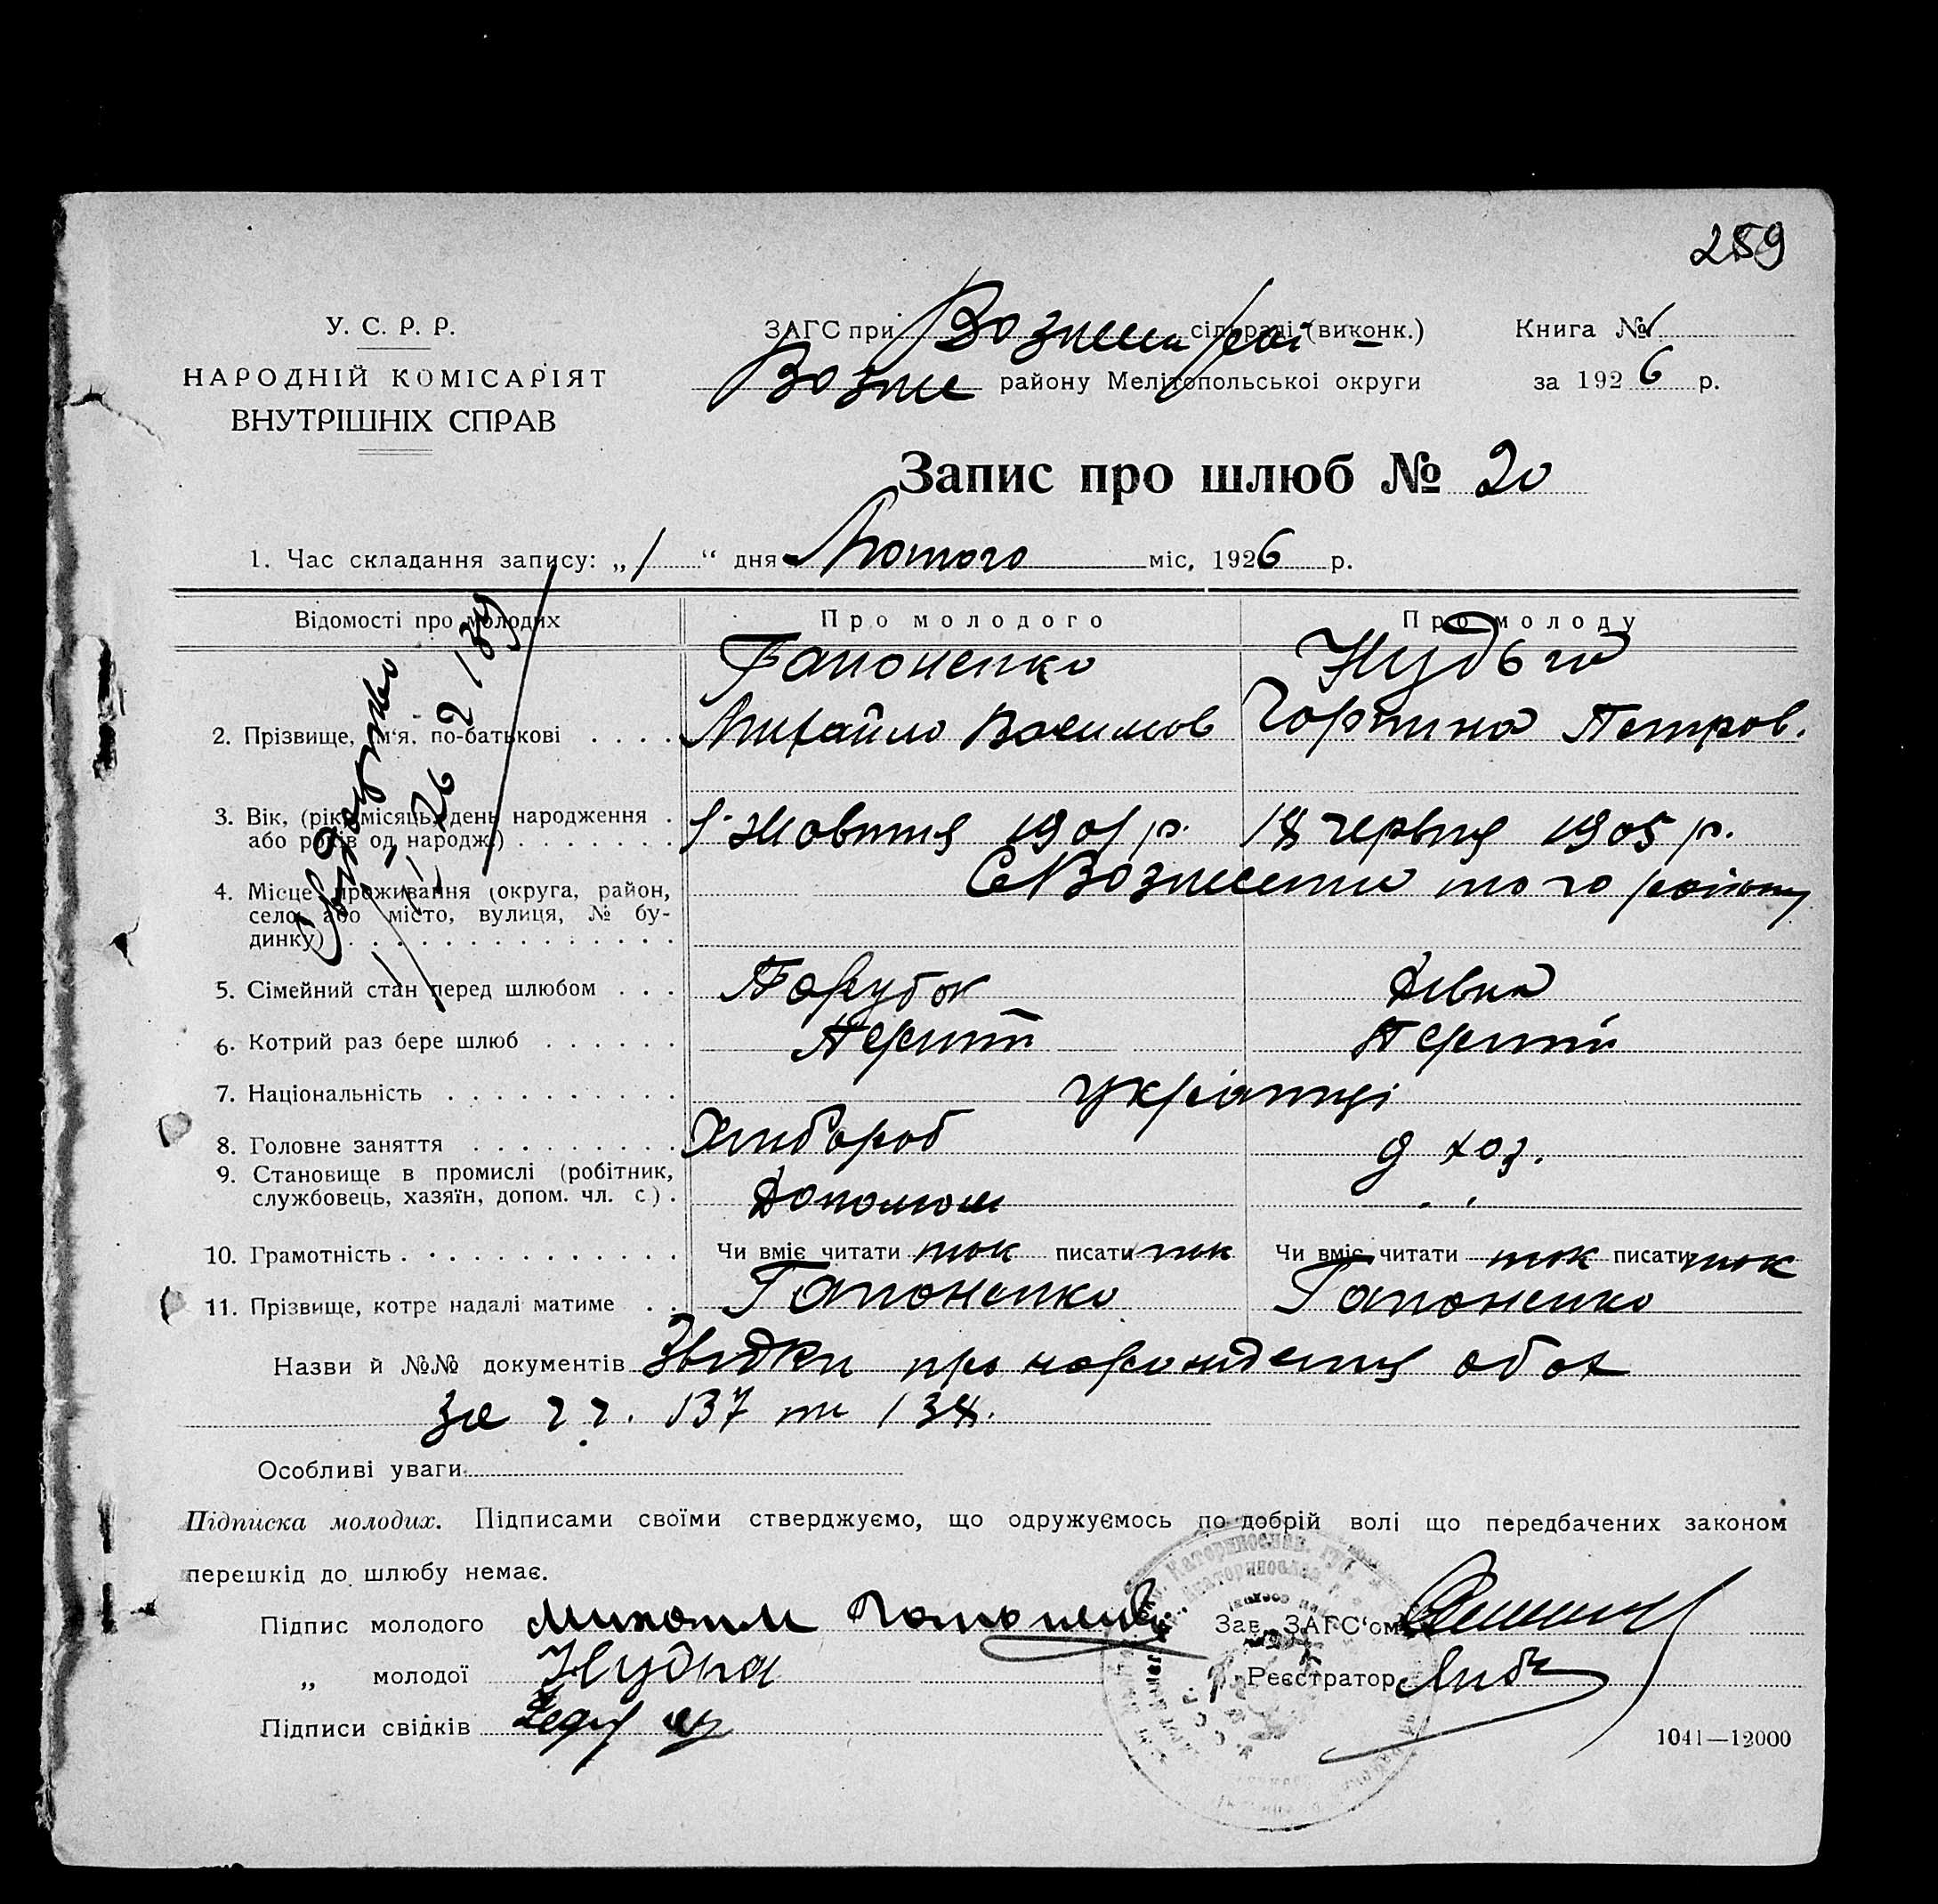 259
У. С. Р. Р.
НАРОДНІЙ КОМІСАРІЯТ
ВНУТРІШНІХ СПРАВ
ЗАГС при сільраді (виконк.) Книга №
Возне району Мелітопольської округи за 1926 р.
Запис про шлюб № 20
1. Час складання запису: „1“ дня Лютого міс. 1926 р.
Відомості про молодих Про молодого Про молоду
Гапоненко Нудьга
2. Прізвище, ім'я, по-батькові . . . . Михайло Горпина Петров.
3. Вік, (рік, місяць, день народження . 1 Жовтня 1901 р. 18 червня 1905 р.
або років од народж.) . . . . . . .
4. Місце проживання (округа, район, того району
село, або місто, вулиця, № бу-
динку) . . . . . . . . . . . . . .
5. Сімейний стан перед шлюбом . . . Парубок Дівка
6. Котрий раз бере шлюб . . . . . . Перший Перший
7. Національність . . . . . . . . . . українці
8. Головне заняття . . . . . . . . . Хлібороб д хоз.
9. Становище в промислі (робітник,
службовець, хазяїн, допом. чл. с.) .
10. Грамотність . . . . . . . . . . . . Чи вміє читати так писати так Чи вміє читати так писати так
11. Прізвище, котре надалі матиме . . Гапоненко Гапоненко
Назви й №№ документів про народження обох
за ч ч. 137 та 138.
Особливі уваги
Підписка молодих. Підписами своїми стверджуємо, що одружуємось по добрій волі що передбачених законом
перешкід до шлюбу немає.
Підпис молодого Гапоненко Зав. ЗАГС'ом
„ молодої Реєстратор
Підписи свідків
1041—12000